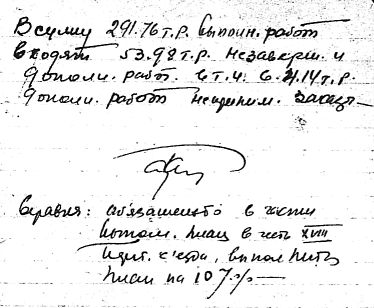 В сумму 291.76 т.р. выполн. работ
входят 53.98 т.р. незаверш. и
дополн. работ. в т.ч. 6.414 т.р.
дополн. работ непрним. заказч
Справка: обязательство в части
выполн. плана в честь XVIII
парт. съезда, выполнить
план на 107%